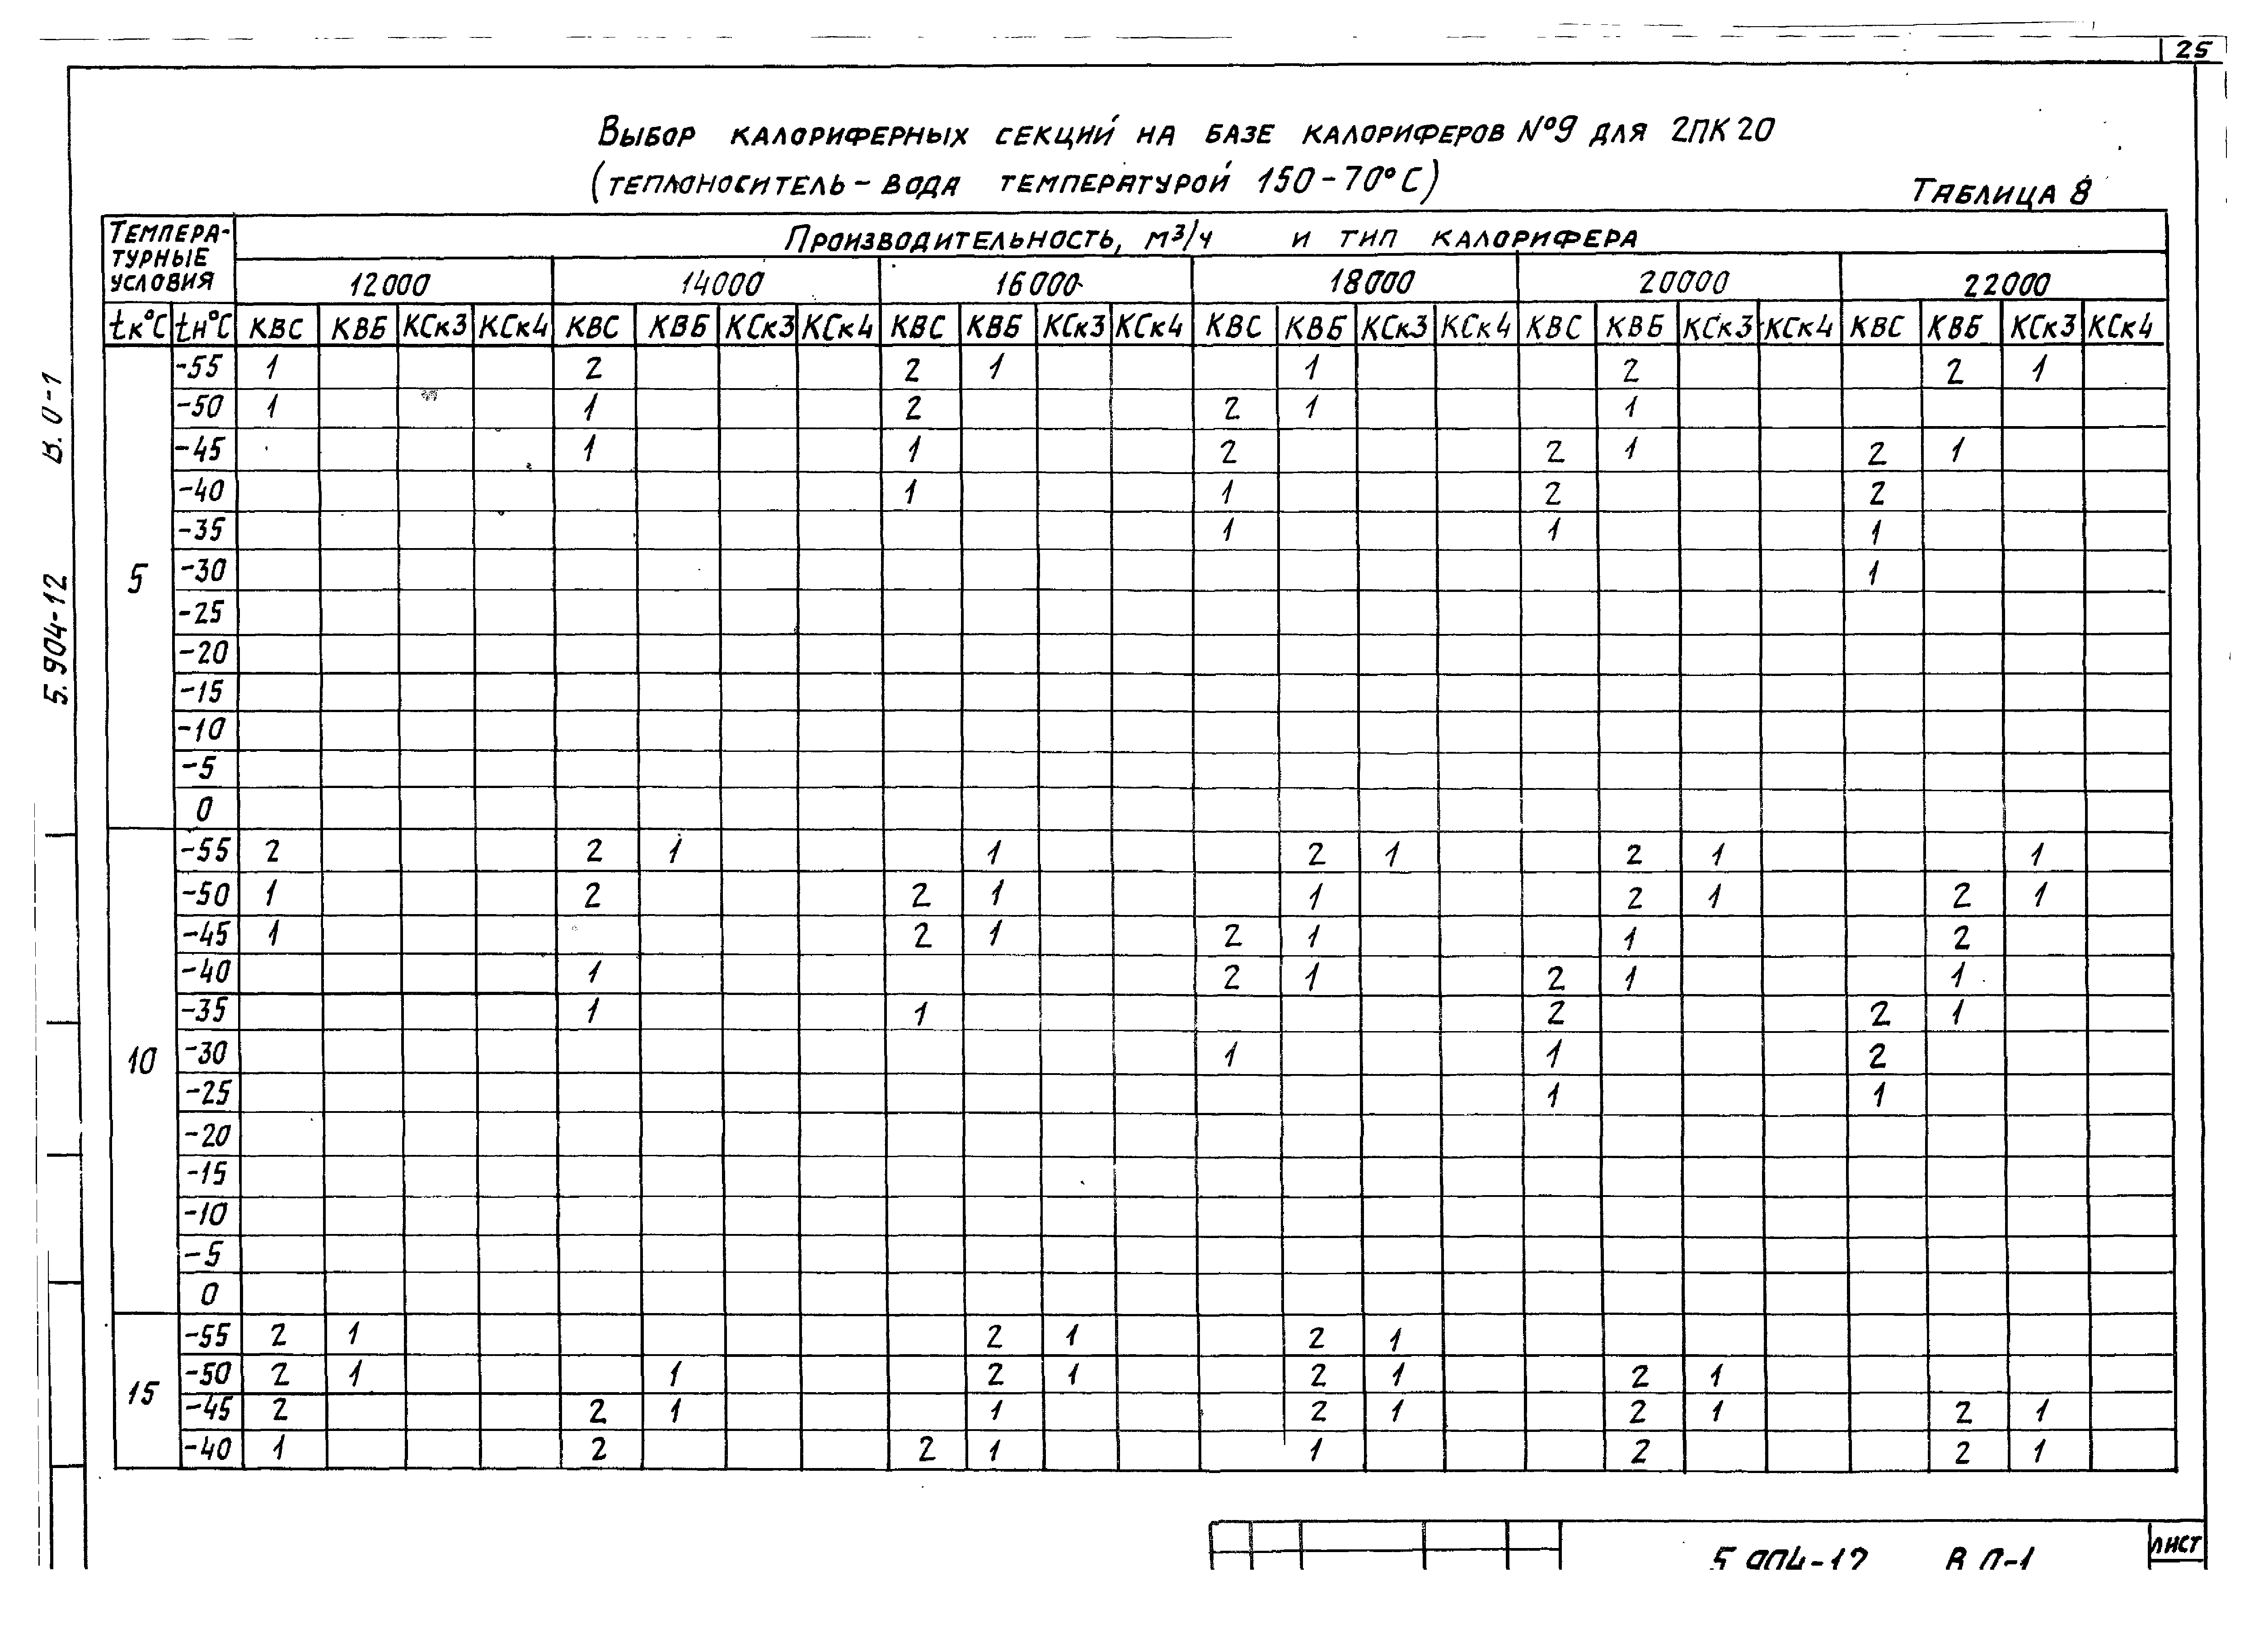 25
Выбор калориферных секций на базе калориферов №9 для 2ПК20
(теплоноситель – вода температурой 150-70°С)
Таблица 8
Темпера-
турные
условия
Производительность, м³/ч и тип калорифера
12000 14000 16000 18000 20000 22000
tк°С tн°С КВС КВБ КСк3 КСк4 КВС КВБ КСк3 КСк4 КВС КВБ КСк3 КСк4 КВС КВБ КСк3 КСк4 КВС КВБ КСк3 КСк4 КВС КВБ КСк3 КСк4
5
-55 1 2 2 1 1 2 2 1
-50 1 1 2 2 1 1
-45 1 1 2 2 1 2 1
-40 1 1 2 2
-35 1 1 1
-30 1
-25
-20
-15
-10
-5
0
10
-55 2 2 1 1 2 1 2 1 1
-50 1 2 2 1 1 2 1 2 1
-45 1 2 1 2 1 1 2
-40 1 2 1 2 1 1
-35 1 1 2 2 1
-30 1 1 2
-25 1 1
-20
-15
-10
-5
0
15
-55 2 1 2 1 2 1
-50 2 1 1 2 1 2 1 2 1
-45 2 2 1 1 2 1 2 1 2 1
-40 1 2 2 1 1 2 2 1
5.904-12 В.0-1
5 904-12 В 0-1
лист